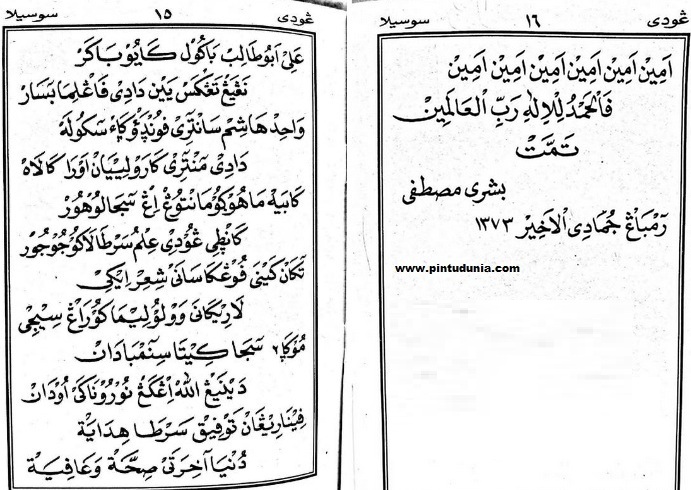 ڠودي ١٥ سوسيلا
عَلِى اَبُوطَالِبْ بَاكُولْ كَايُوبَاكَرْ
نَڠِيڠْ تَڠْكَسْ يَيْن دَادِى فَاڠْلِمَا بَسَارْ
وَاحِدْ هَاشِمْ سَانْتْرِى فَونْدَوْ ڮَاءْ سَكُولَهْ
دَادِى مَنْتْرِى كَارَو لِييَانْ اَورَا كَالَاهْ
كَابَيهْ مَاهُو كُومَانْتُوڠْ اِڠْ سَجَا لُوهُورْ
كَانْطِى ڠُودِى عِلْمُ سَرْطَا لَاكُو جُوجُورْ
تَكَانْ كَيْنَى فُوڠْكَاسَانَى شِعِرْ اِيكِى
لَارِيكَانَى وَولُوْ لِيمَا كُورَاڠْ سِيجِى
مُوكَا٢ سَجَا كِيتَا سِنَمْبَادَانْ
دَينَيڠْ اللّٰهْ اِڠْكَڠْ نُورُونَاكَى اُودَانْ
فِينَارِيڠَانْ تَوْفِيقْ سَرْطَا هِدَايَةْ
دُنْيَا آخِرَتَى صِحَّةْ وَعَافِيَةْ
ڠودي ١٦ سوسيلا
اٰمِيْن اٰمِيْن اٰمِيْن اٰمِيْن اٰمِيْن اٰمِيْن
فَالْحَمْدُ لِلْاِلٰهِ رَبِّ الْعَالَمِيْن
تَمَّتْ
بشرى مصطفى
رَمْبَاڠْ جُمَادِى الْاَخِيْر ١٣٧٣
www.pintudunia.com